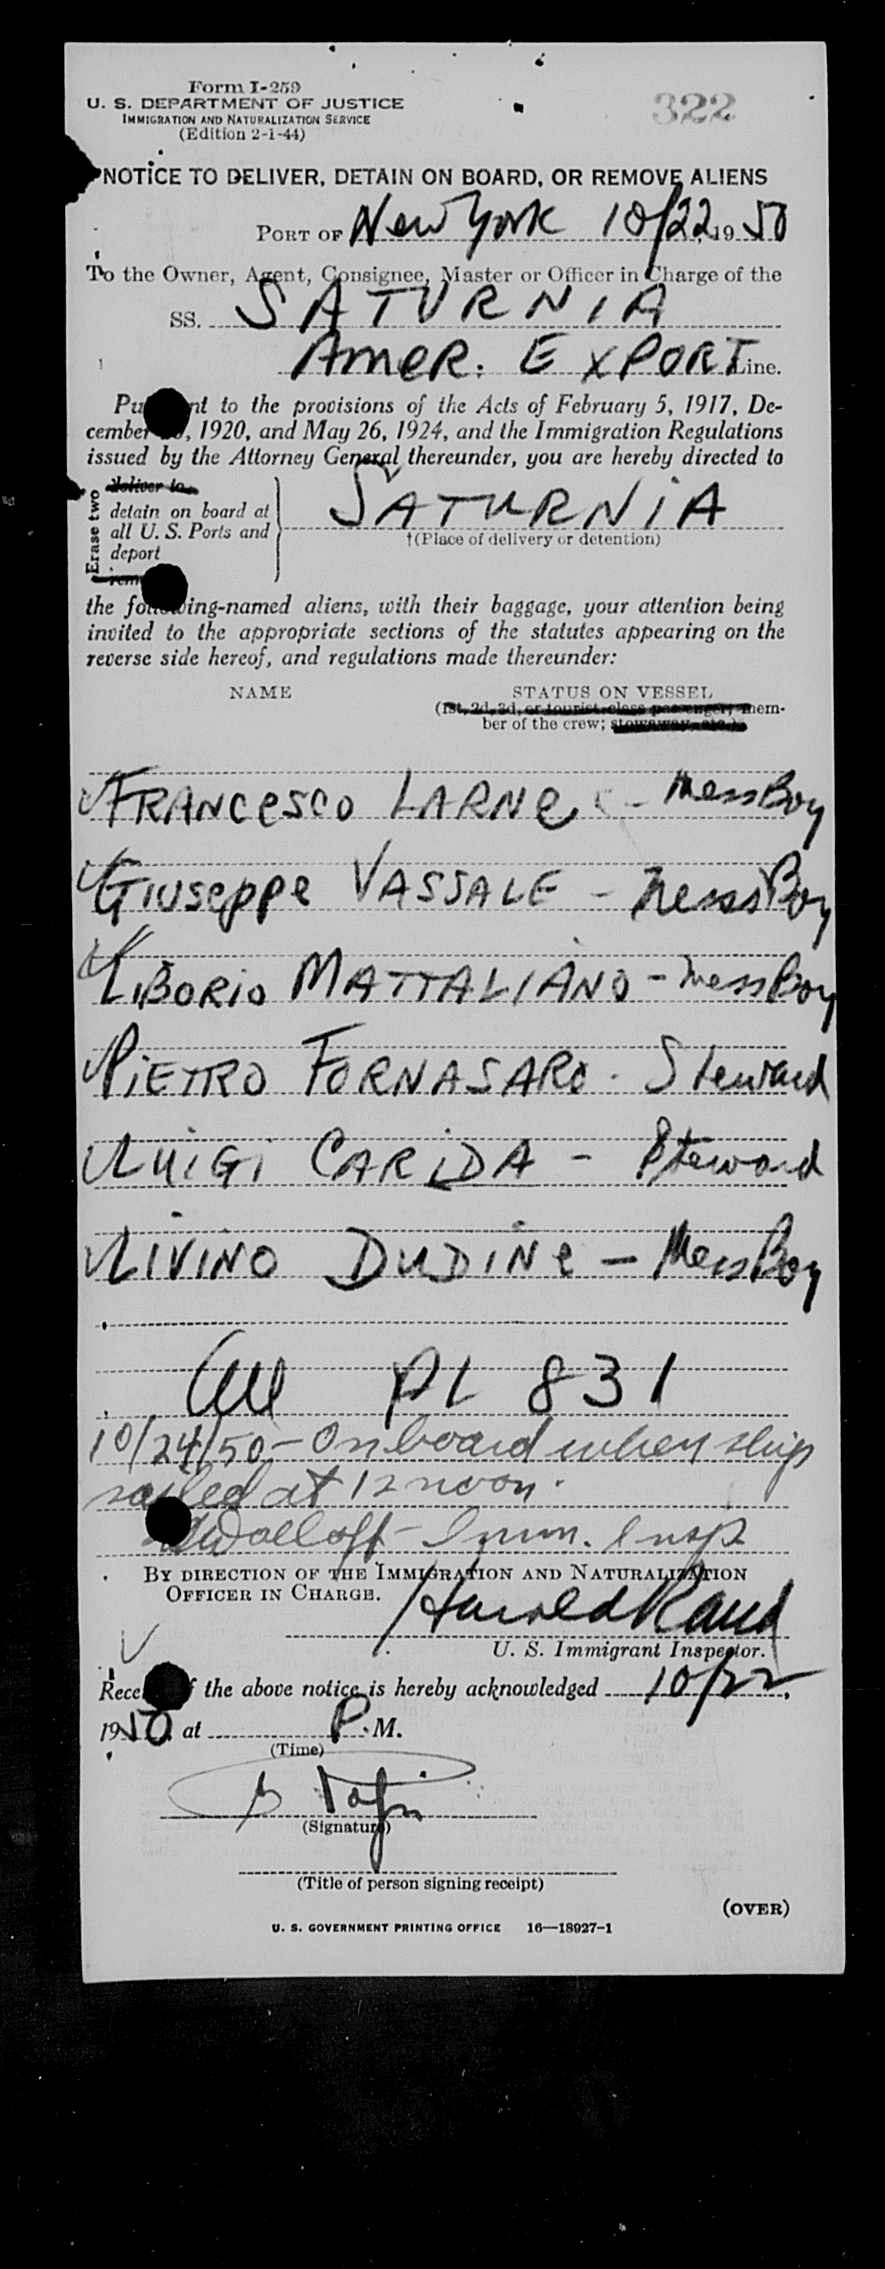 Form I-259
U. S. DEPARTMENT OF JUSTICE
IMMIGRATION AND NATURALIZATION SERVICE
(Edition 2-1-44)
322
NOTICE TO DELIVER, DETAIN ON BOARD, OR REMOVE ALIENS
PORT OF New York 10/22, 1950
To the Owner, Agent, Consignee, Master or Officer in Charge of the
SS. SATURNIA
AmeR. EXPORT Line.
Pu nt to the provisions of the Acts of February 5, 1917, De-
cember , 1920, and May 26, 1924, and the Immigration Regulations
issued by the Attorney General thereunder, you are hereby directed to
Erase two
deliver to
detain on board at
all U. S. Ports and
deport
rem
SATURNIA
†(Place of delivery or detention)
the fo ing-named aliens, with their baggage, your attention being
invited to the appropriate sections of the statutes appearing on the
reverse side hereof, and regulations made thereunder:
NAME STATUS ON VESSEL
(1st, 2d, 3d, or tourist-class passenger; mem-
ber of the crew; stowaway, etc.)
FRANCESCO LARNE - Mess Boy
GIUSEPPE VASSALE - Mess Boy
LIBORIO MATTALIANO - Mess Boy
PIETRO FORNASARO - Steward
LUIGI CARIDA - Steward
LIVINO DUDINE - Mess Boy
All PL 831
10/24/50 - On board when ship
sailed at 12 noon.
- Imm. Insp.
BY DIRECTION OF THE IMMIGRATION AND NATURALIZATION
OFFICER IN CHARGE.
Harold Rand
U. S. Immigrant Inspector.
Rece f the above notice is hereby acknowledged 10/22,
1950 at P. M.
(Time)
(Signature)
(Title of person signing receipt)
(OVER)
U. S. GOVERNMENT PRINTING OFFICE 16—18927-1